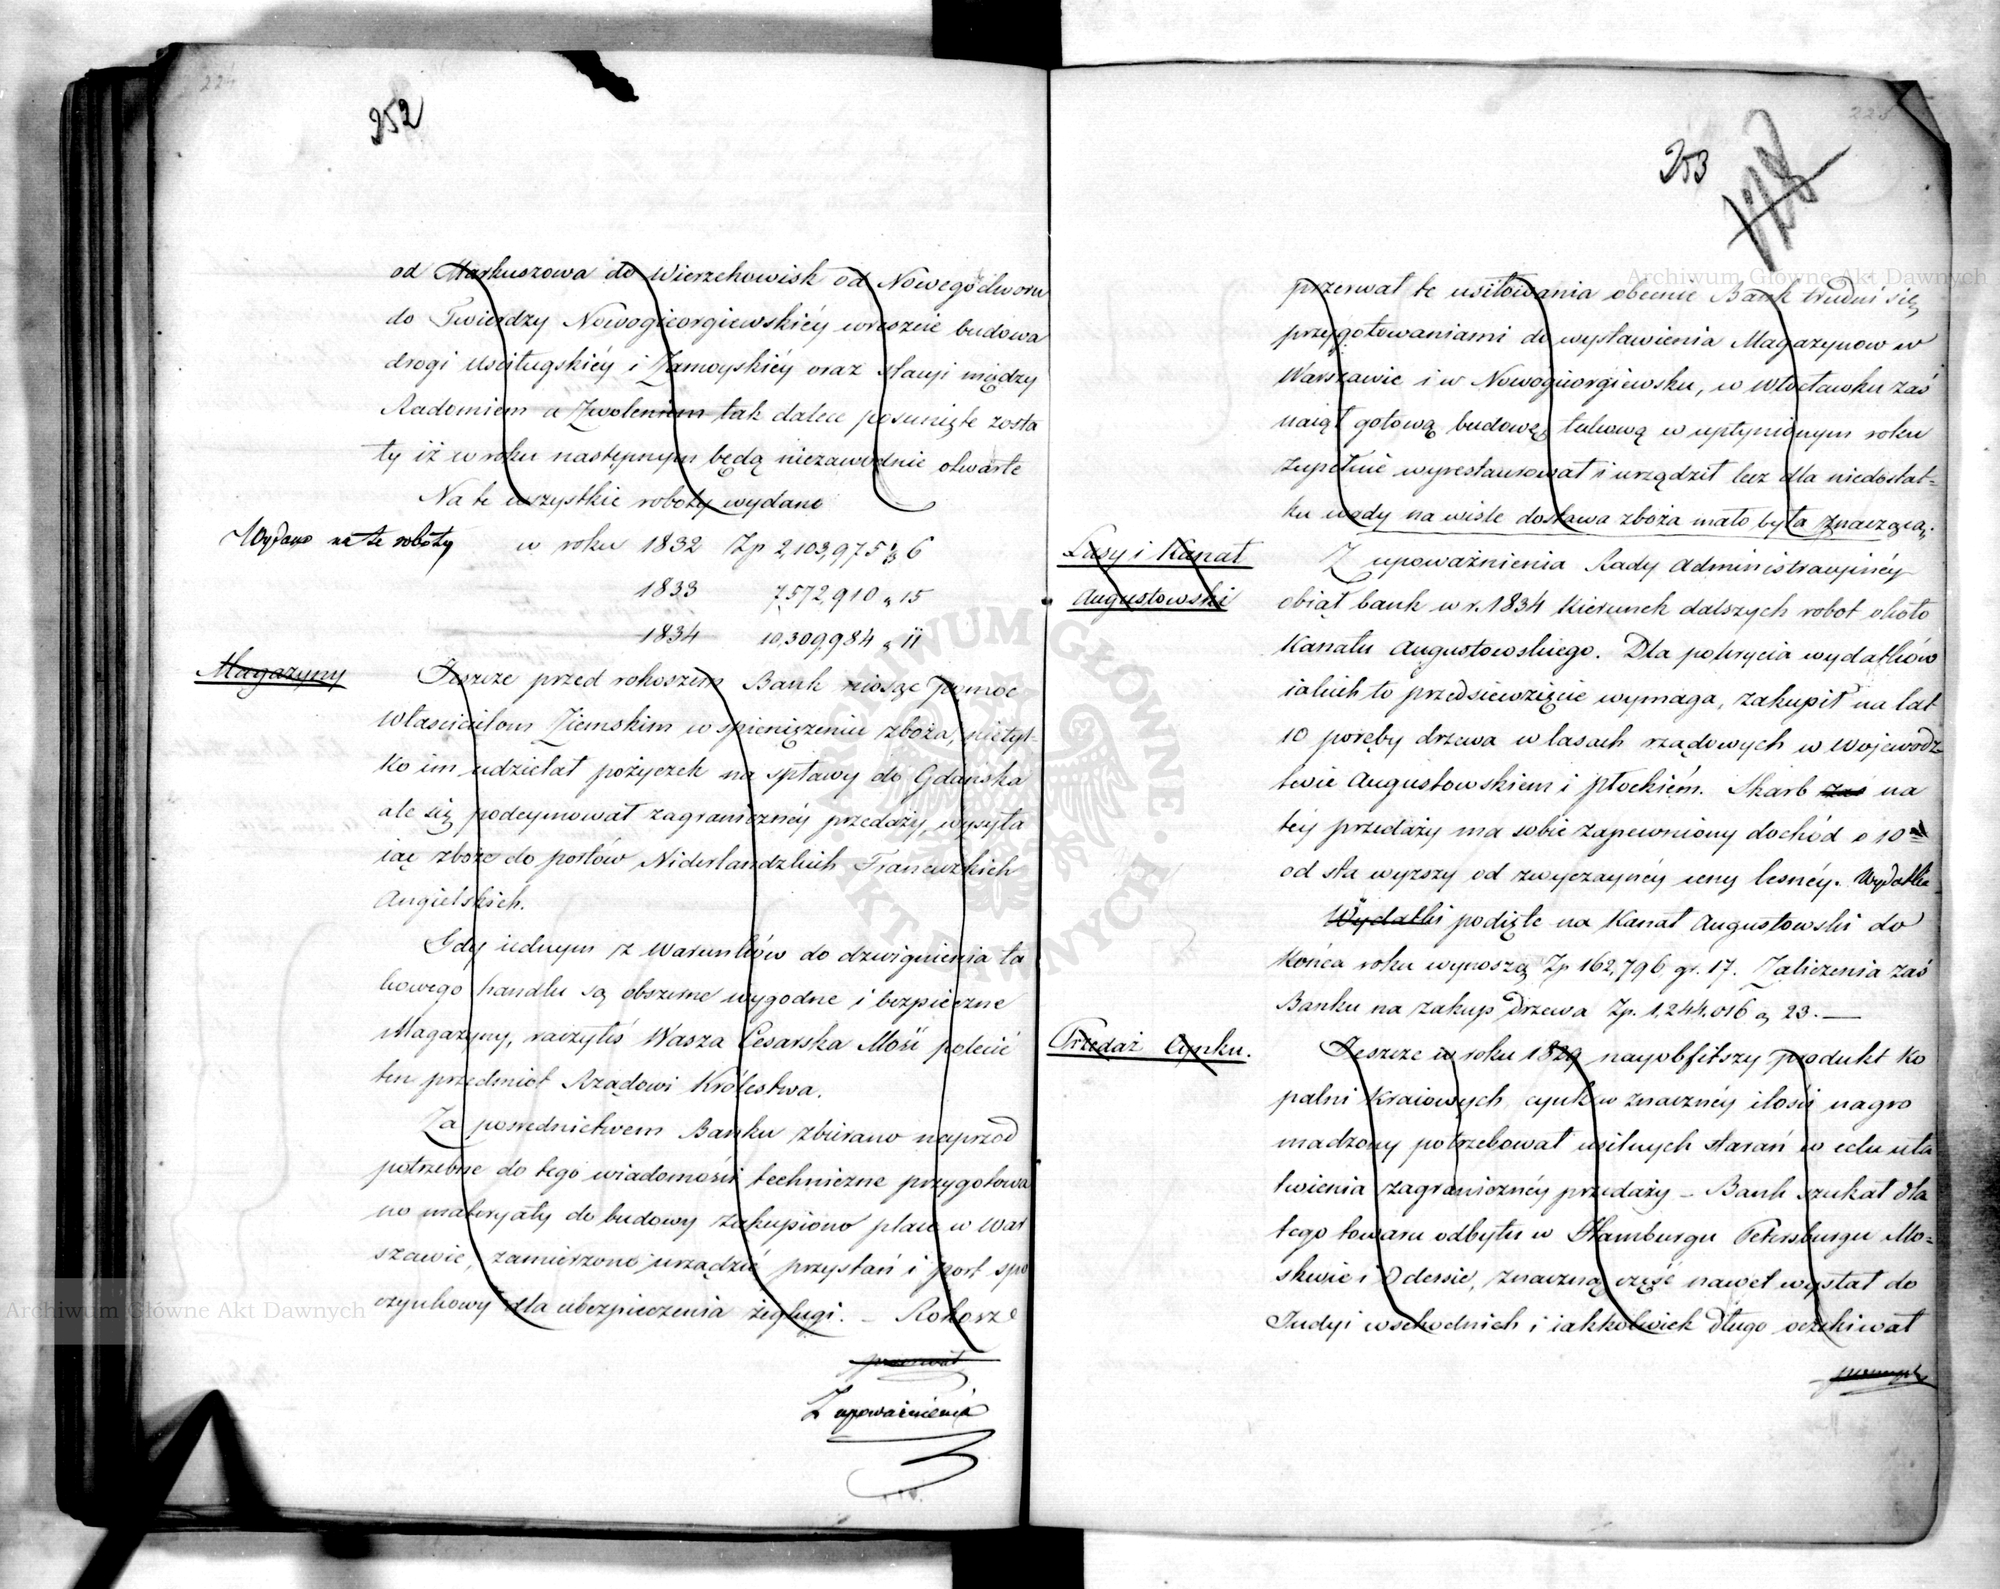 224
252
od Markuszowa do Wierzchowisk od Nowegodworu
do Twierdzy Nowogieorgiewskiéy wreszcie budowa
drogi Uściługskiéy i Zamoyskiéy oraz stacyi między
Radomiem a Zwoleniem tak dalece posunięte zosta
ły iż w roku następnym będą niezawodnie otwarte
Na te wszystkie roboty wydano
Wydano na te roboty
w roku 1832 Zp 2,103,975 „ 6
1833 7,572,910 „ 15
1834 10,309,984 „ 11
Magazyny
Jeszcze przed rokoszem Bank niosąc pomoc
Właścicielom Ziemskim w spieniężeniu zboża, nietyl-
ko im udzielał pożyczek na spławy do Gdańska
ale się podeymował zagranicznéy przedaży, wysyła
iąc zboże do portów Niderlandzkich Francuzkich
Angielskich.
Gdy iednym z Warunków do dzwignienia ta
kowego handlu są obszerne wygodne i bezpieczne
Magazyny, raczyłeś Wasza Cesarska Mość polecić
ten przedmiot Rządowi Królestwa.
Za posrednictwem Banku zbierano naprzod
potrzebne do tego wiadomości techniczne przygotowa
no materyały do budowy zakupiono place w War
szawie, zamierzono urządzić przystań i port spo
czynkowy dla ubezpieczenia żeglugi. – Rokosz
przerwał
Z upoważnienia
225
253
128
przerwał te usiłowania obecnie Bank trudni się
przygotowaniami do wystawienia Magazynow w
Warszawie i w Nowogieorgiewsku, w Włocławku zaś
naiął gotową budowę, takową w upłynionym roku
zupełnie wyrestaurował i urządził lecz dla niedostat-
ku wody na wiśle dostawa zboża mało była znaczącą.
Lasy i Kanał
Augustowski
Z upoważnienia Rady Administracyinéy
obiął bank w r. 1834 kierunek dalszych robot około
Kanału Augustowskiego. Dla pokrycia wydatków
iakich to przedsiewzięcie wymaga, zakupił na lat
10 poręby drzewa w lasach rządowych w Wojewodz
twie Augustowskiem i płockiém. Skarb zaś na
téy przedaży ma sobie zapewniony dochód o 10
od sta wyzszy od zwyczaynéy ceny lesnéy. Wydatki
Wydatki podięte na Kanał Augustowski do
Końca roku wynoszą Zp 162,796 gr. 17. Zaliczenia zaś
Banku na zakup Drzewa Zp. 1,244,016 „ 23. —
Przedaż Cynku.
Jeszcze w roku 1829 nayobfitszy produkt Ko
palni Kraiowych, cynk w znacznéy ilości nagro
madzony potrzebował usilnych starań w celu uła
twienia zagranicznéy przedaży – Bank szukał dla
tego towaru odbytu w Hamburgu Petersburgu Mo-
skwie i Odessie, znaczną część nawet wysłał do
Indyi wschodnich i iakkolwiek długo oczekiwał